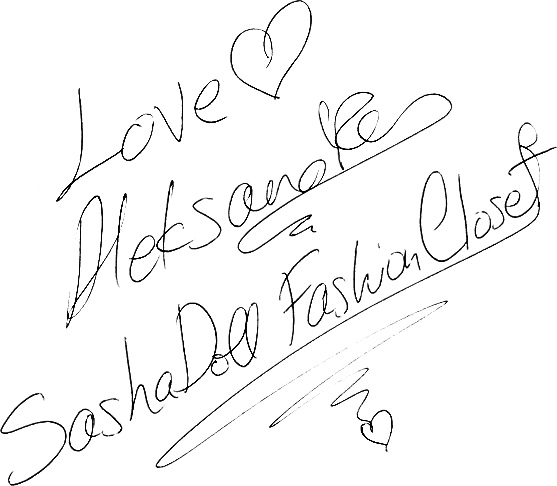 Love
Aleksandra
SashaDoll Fashion Closet